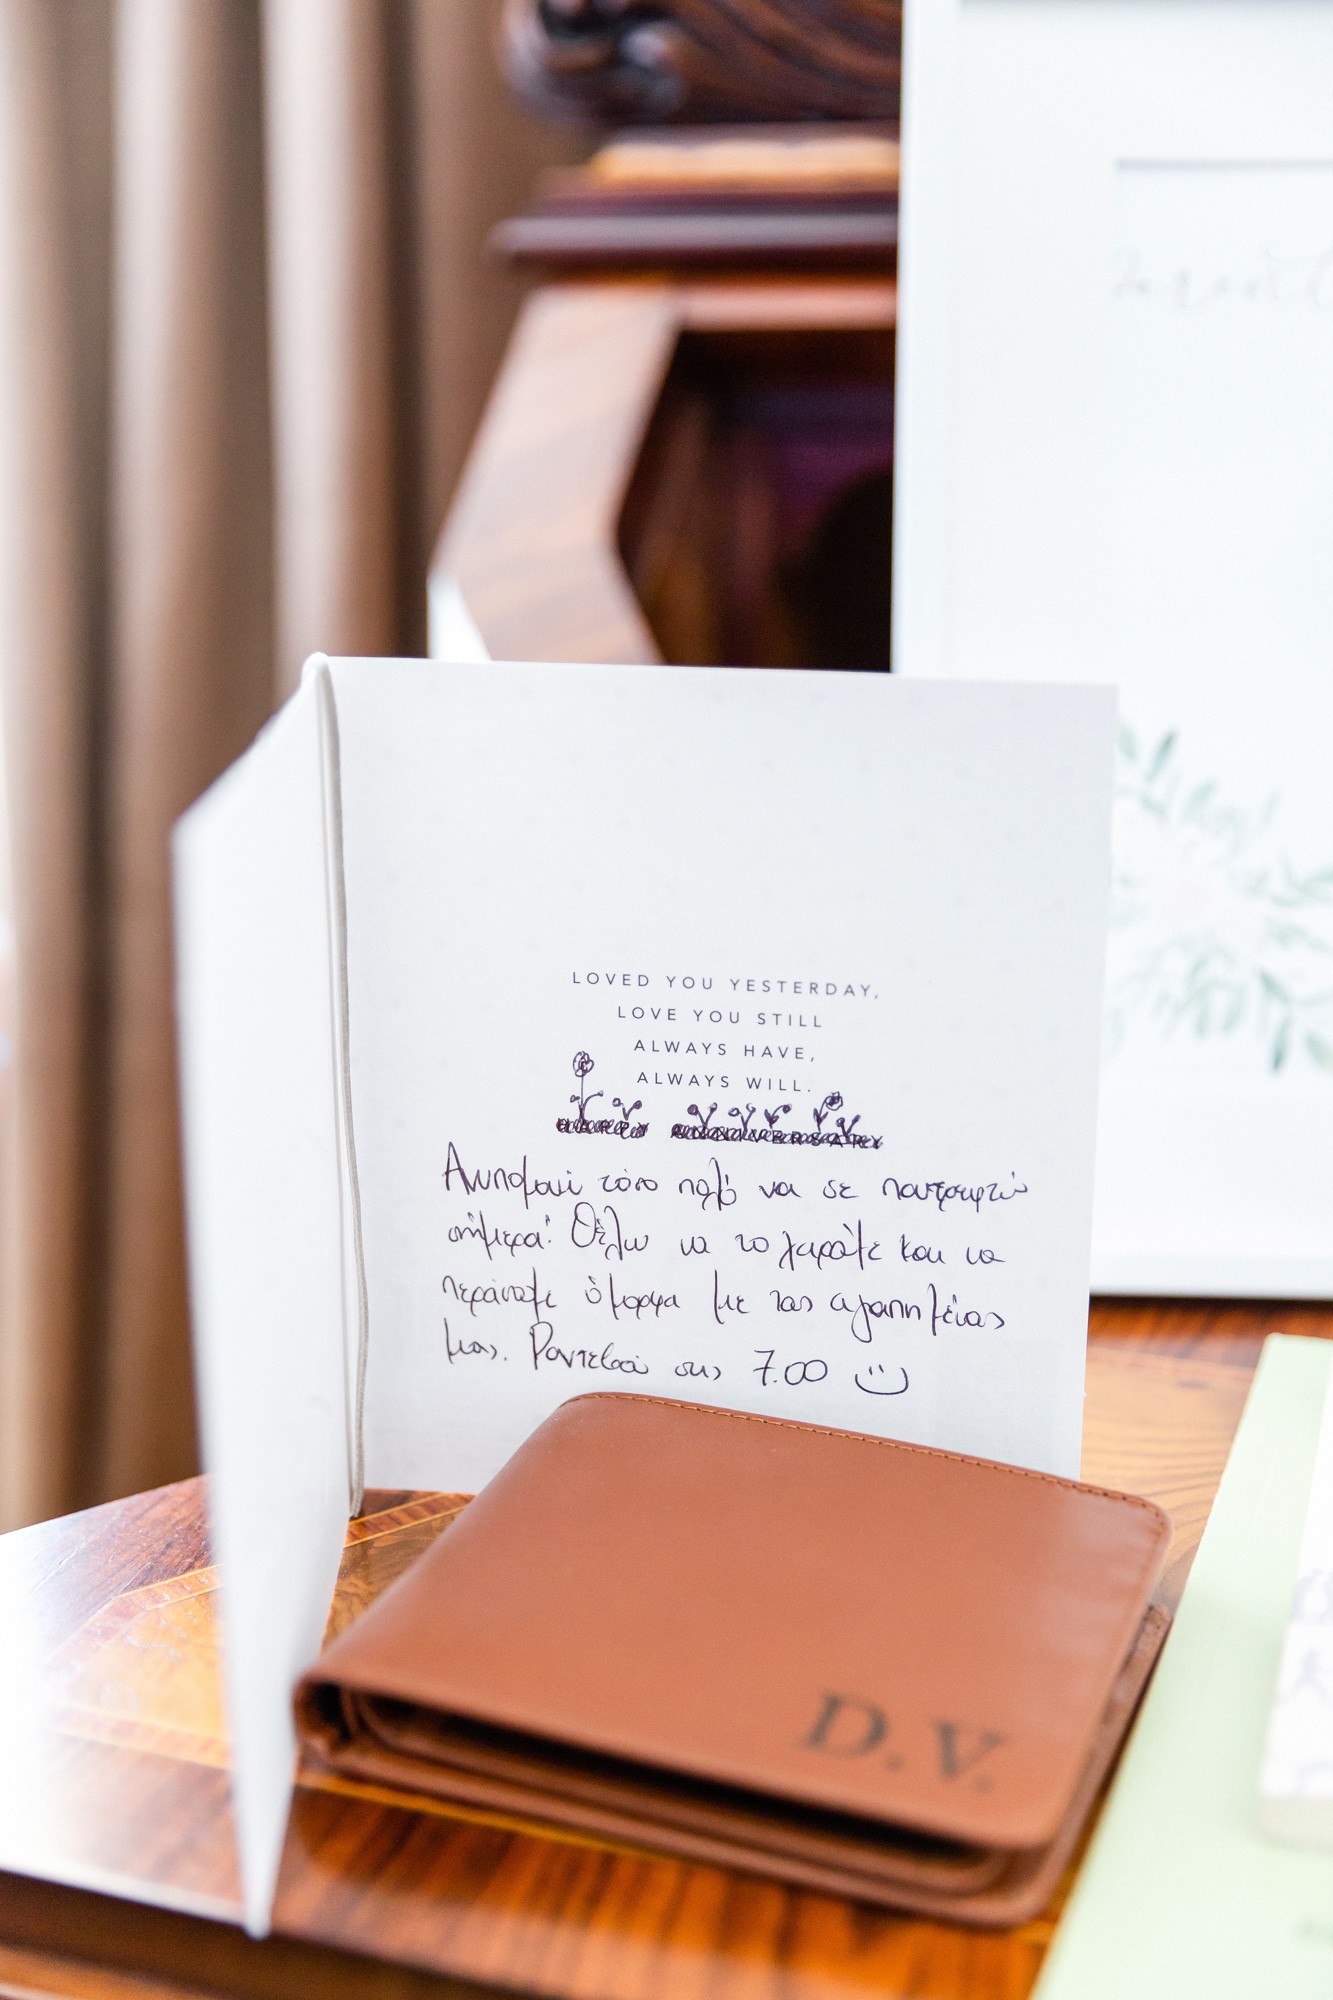 LOVED YOU YESTERDAY,
LOVE YOU STILL
ALWAYS HAVE,
ALWAYS WILL.
Ανυπομονώ τόσο πολύ να σε παντρευτώ
σήμερα! Θέλω να το χαρούμε και να
περάσουμε όμορφα με τους αγαπημένους
μας. Ραντεβού στις 7.00
D.V.